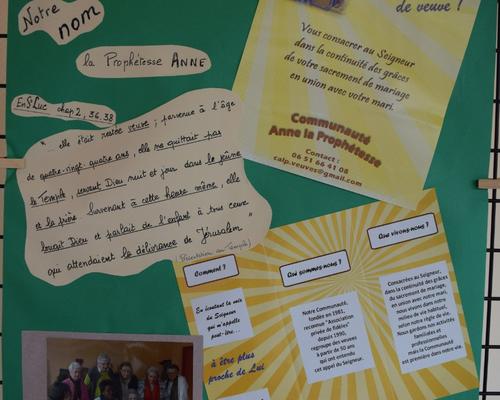 Notre
nom
la Prophétesse ANNE
En St Luc chap 2, 36.38
" elle était restée veuve ; parvenue à l'âge
de quatre-vingt quatre ans, elle ne quittait pas
le Temple, servant Dieu nuit et jour dans le jeûne
et la prière. Survenant à cette heure même, elle
louait Dieu et parlait de l'enfant à tous ceux
qui attendaient la délivrance de Jérusalem "
(Présentation au Temple)
de veuve !
Vous consacrer au Seigneur
dans la continuité des grâces
de votre sacrement de mariage
en union avec votre mari.
Communauté
Anne la Prophétesse
Contact :
06 51 66 41 08
calp.veuves@gmail.com
Comment ?
En écoutant la voix
du Seigneur
qui m'appelle
peut-être...
à être plus
proche de Lui
Qui sommes-nous ?
Notre Communauté,
fondée en 1981,
reconnue "Association
privée de fidèles"
depuis 1990,
regroupe des veuves
à partir de 50 ans
qui ont entendu
cet appel du Seigneur.
Que vivons-nous ?
Consacrées au Seigneur,
dans la continuité des grâces
du sacrement de mariage,
en union avec notre mari,
nous vivons dans notre
milieu de vie habituel,
selon notre règle de vie.
Nous gardons nos activités
familiales et
professionnelles
mais la Communauté
est première dans notre vie.